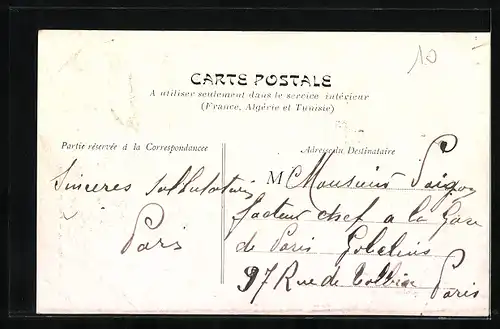 10
CARTE POSTALE
A utiliser seulement dans le service intérieur
(France, Algérie et Tunisie)
Partie réservée à la Correspondance
Adresse du Destinataire
Sinceres
Paris
M Monsieur
facteur chef a la Gare
de Paris Gobelins
97 Rue de Tolbiac
Paris